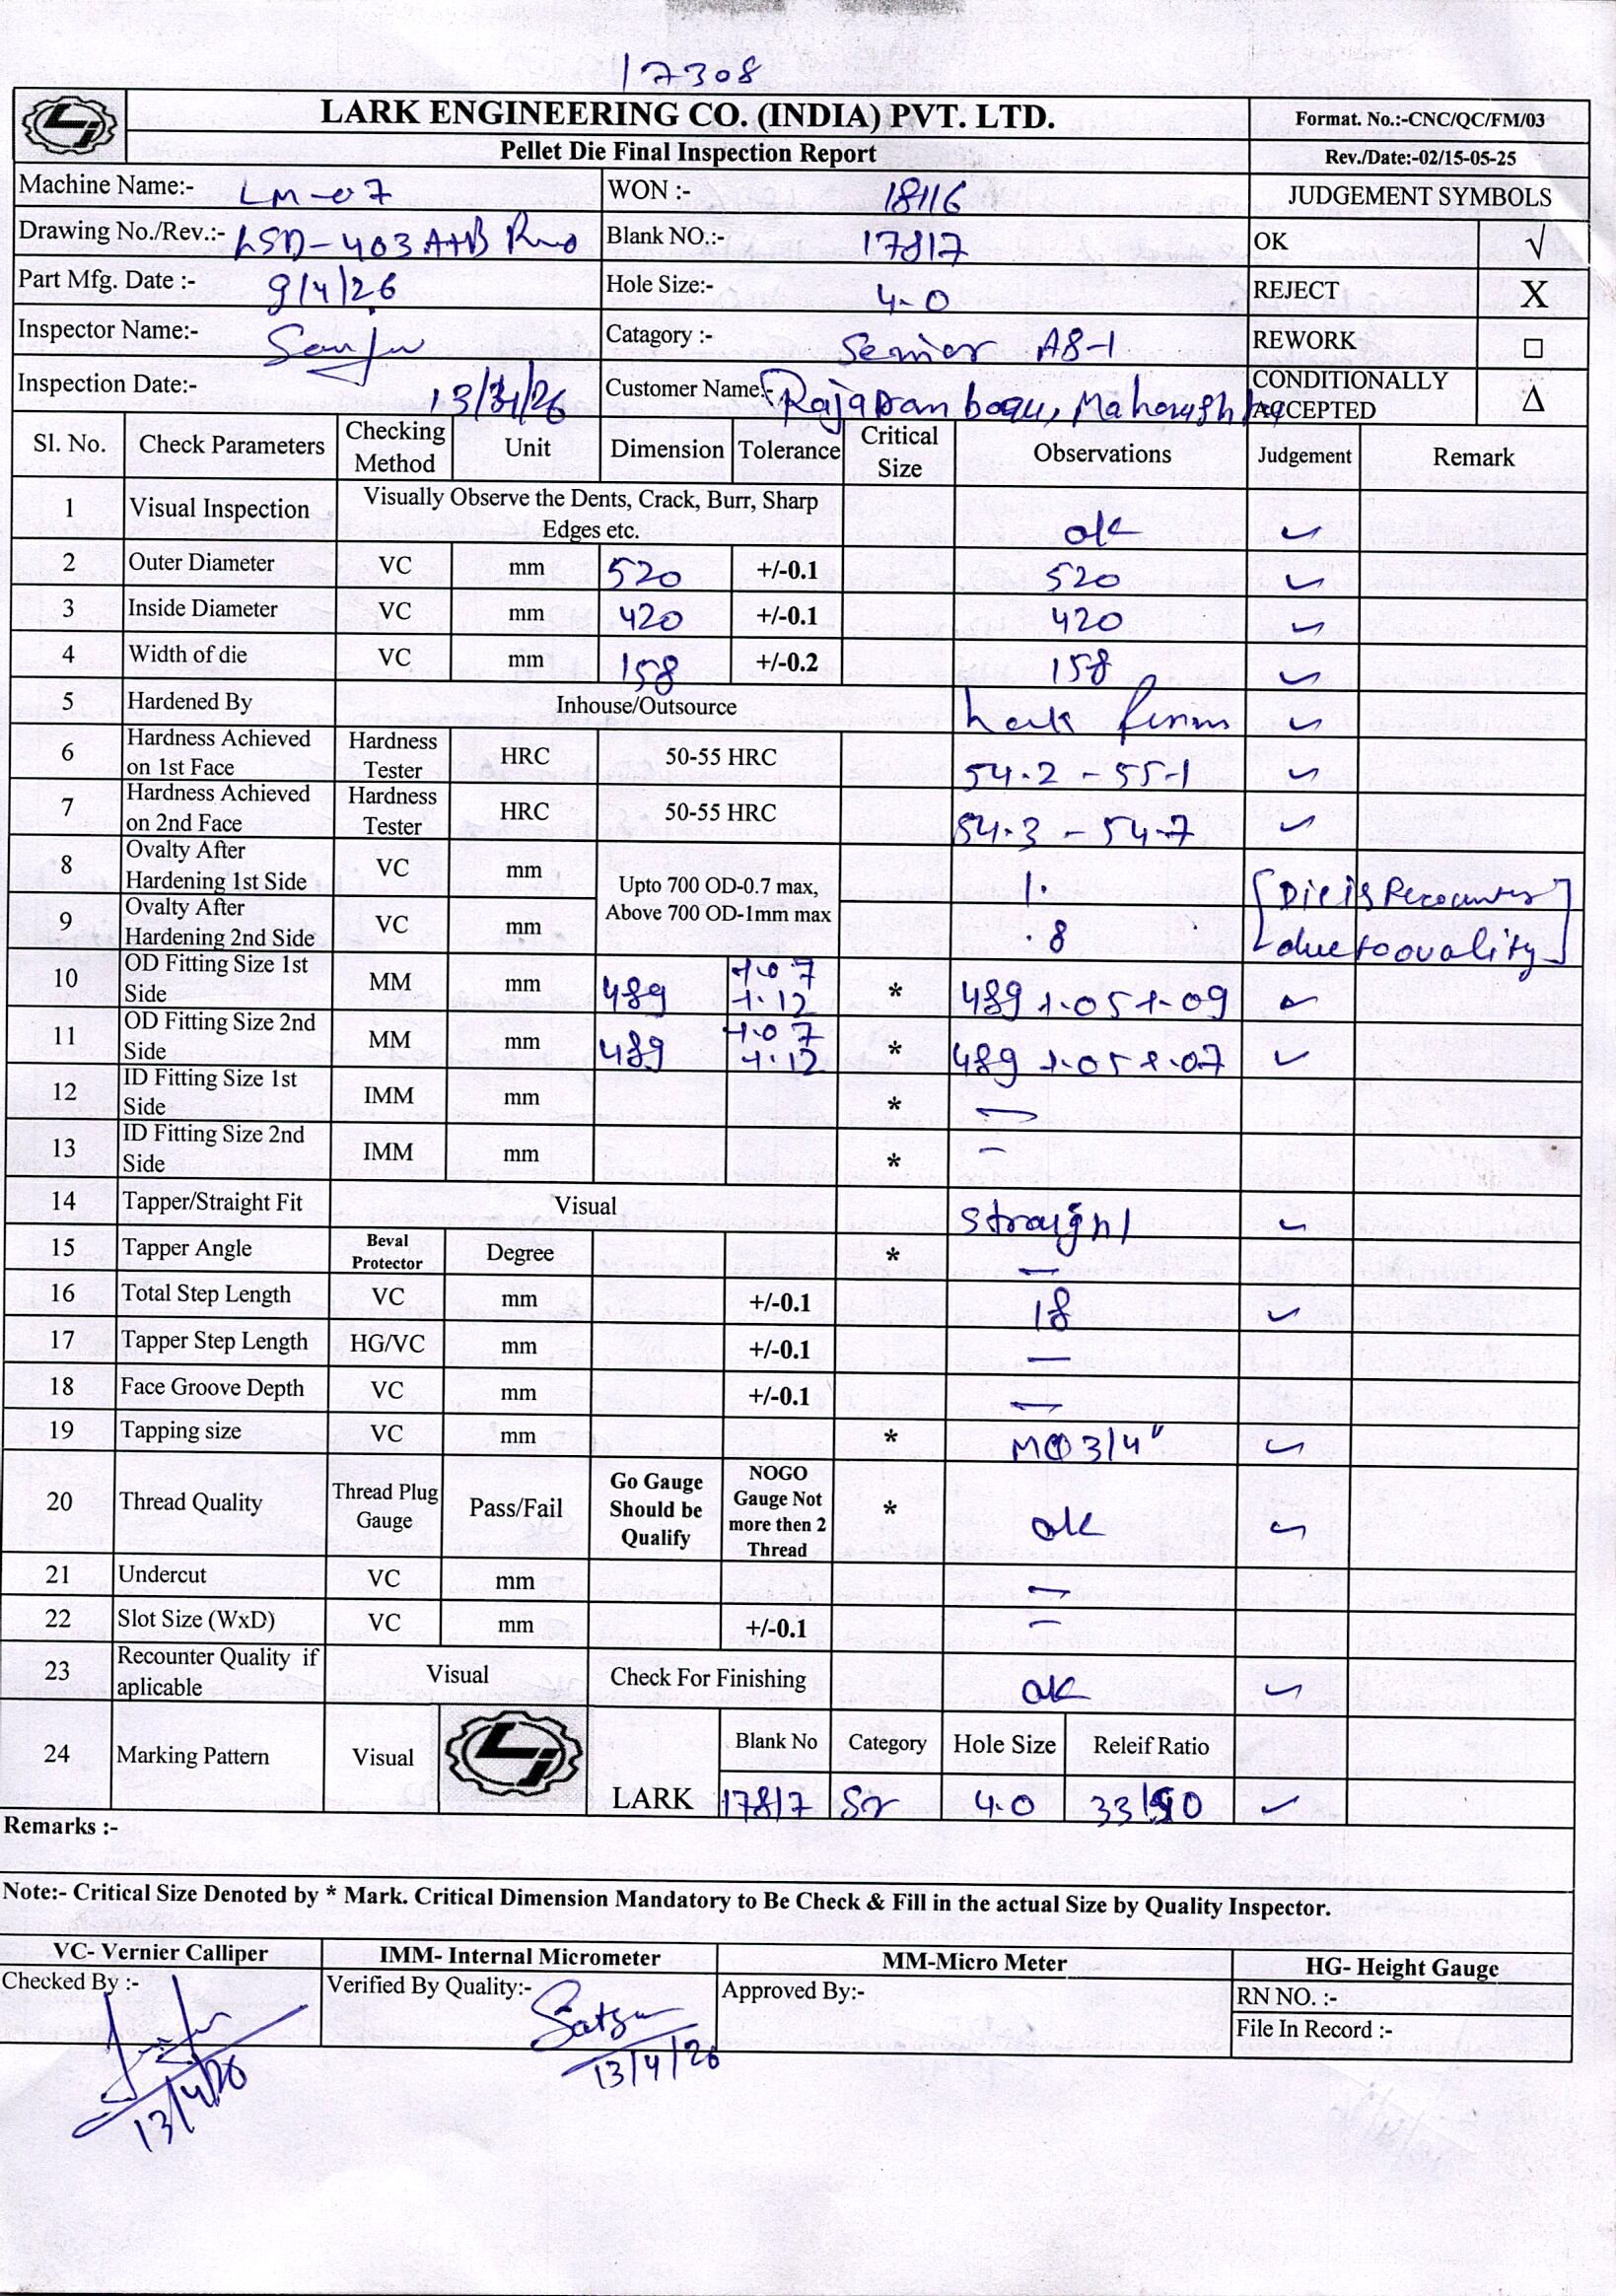 17308
LARK ENGINEERING CO. (INDIA) PVT. LTD.
Format. No.:-CNC/QC/FM/03
Pellet Die Final Inspection Report
Rev./Date:-02/15-05-25
Machine Name:- LM-07
WON :- 18116
JUDGEMENT SYMBOLS
Drawing No./Rev.:- LSD-403 A+B
Blank NO.:- 17817
OK √
Part Mfg. Date :- 9/4/26
Hole Size:- 4.0
REJECT X
Inspector Name:- Sanju
Catagory :- Senior A8-1
REWORK □
Inspection Date:- 13/4/26
Customer Name:-
CONDITIONALLY ACCEPTED Δ
Sl. No. Check Parameters Checking Method Unit Dimension Tolerance Critical Size Observations Judgement Remark
1 Visual Inspection Visually Observe the Dents, Crack, Burr, Sharp Edges etc. ok ✓
2 Outer Diameter VC mm 520 +/-0.1 520 ✓
3 Inside Diameter VC mm 420 +/-0.1 420 ✓
4 Width of die VC mm 158 +/-0.2 158 ✓
5 Hardened By Inhouse/Outsource Lark ✓
6 Hardness Achieved on 1st Face Hardness Tester HRC 50-55 HRC 54.2 - 55.1 ✓
7 Hardness Achieved on 2nd Face Hardness Tester HRC 50-55 HRC 54.3 - 54.7 ✓
8 Ovalty After Hardening 1st Side VC mm Upto 700 OD-0.7 max, Above 700 OD-1mm max 1. [Die is Recounter
9 Ovalty After Hardening 2nd Side VC mm .8 due to ovality]
10 OD Fitting Size 1st Side MM mm 489 +.07 +.12 * 489 +.05 +.09 ✓
11 OD Fitting Size 2nd Side MM mm 489 +.07 +.12 * 489 +.05 +.07 ✓
12 ID Fitting Size 1st Side IMM mm * —
13 ID Fitting Size 2nd Side IMM mm * —
14 Tapper/Straight Fit Visual straight ✓
15 Tapper Angle Beval Protector Degree * —
16 Total Step Length VC mm +/-0.1 18 ✓
17 Tapper Step Length HG/VC mm +/-0.1 —
18 Face Groove Depth VC mm +/-0.1 —
19 Tapping size VC mm * 3/4" ✓
20 Thread Quality Thread Plug Gauge Pass/Fail Go Gauge Should be Qualify NOGO Gauge Not more then 2 Thread * ok ✓
21 Undercut VC mm —
22 Slot Size (WxD) VC mm +/-0.1 —
23 Recounter Quality if aplicable Visual Check For Finishing ok ✓
24 Marking Pattern Visual LARK Blank No Category Hole Size Releif Ratio
17817 Sr 4.0 ✓
Remarks :-
Note:- Critical Size Denoted by * Mark. Critical Dimension Mandatory to Be Check & Fill in the actual Size by Quality Inspector.
VC- Vernier Calliper IMM- Internal Micrometer MM-Micro Meter HG- Height Gauge
Checked By :- Verified By Quality:- Approved By:- RN NO. :-
File In Record :-
13/4/26 13/4/26